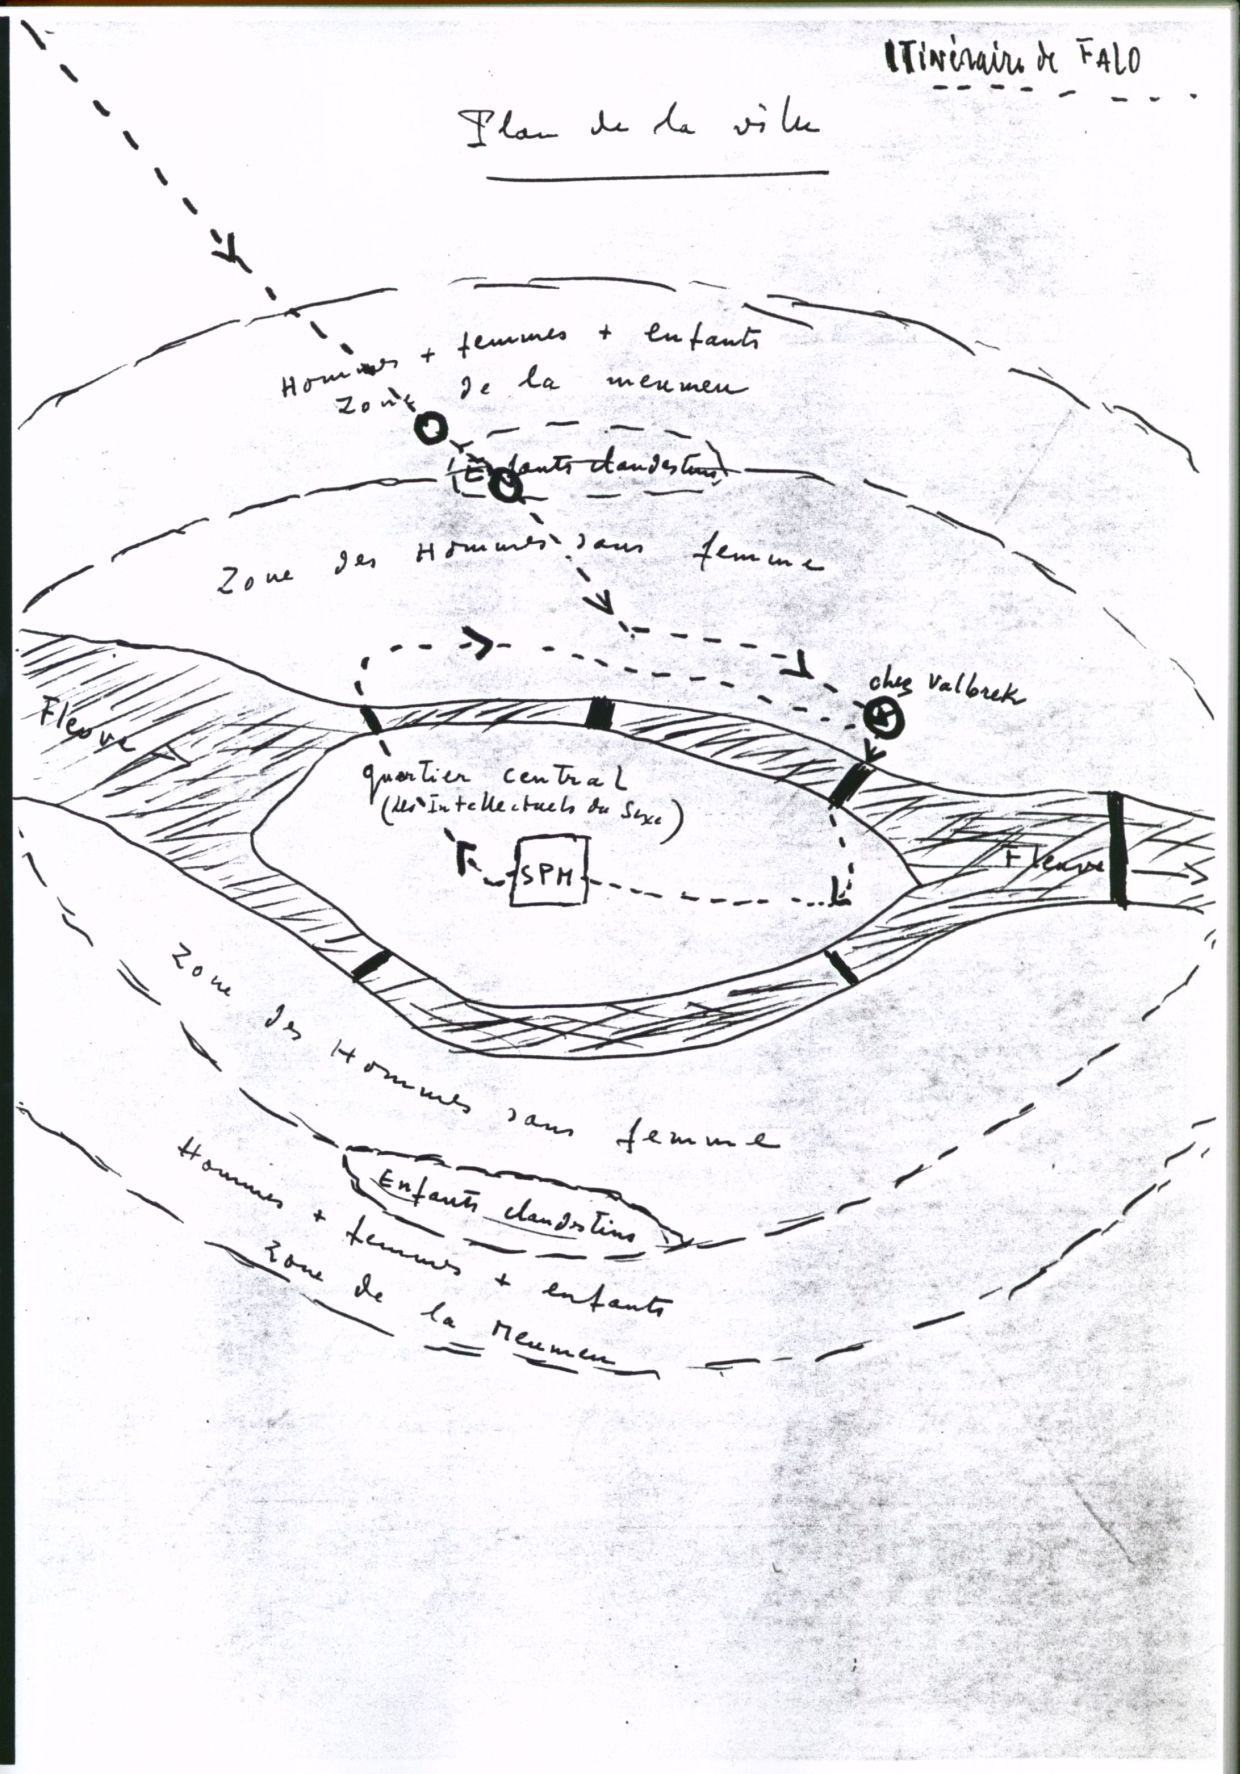 Itinéraire de FALO
Plan de la ville
Hommes + femmes + enfants
Zone de la meumeu
Enfants clandestins
Zone des Hommes sans femme
chez Valbrek
Fleuve
quartier central
(des Intellectuels du Sexe)
SPM
Fleuve
Zone des Hommes sans femme
Enfants clandestins
Hommes + femmes + enfants
Zone de la Meumeu